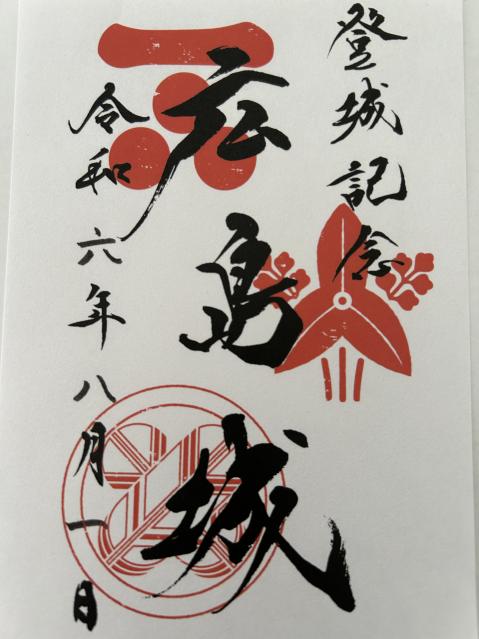 登城記念
広島城
令和六年八月一日